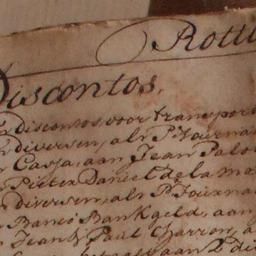 Rott
Discontos,
discontos, voor transport
diversen, als P Journa
Cassa, aan Jean Palo
Pieter Daniel de la Ma
diversen, als P Journa
Banco Bankgeld, aan
Jean & Paul Charron, a
aan D di